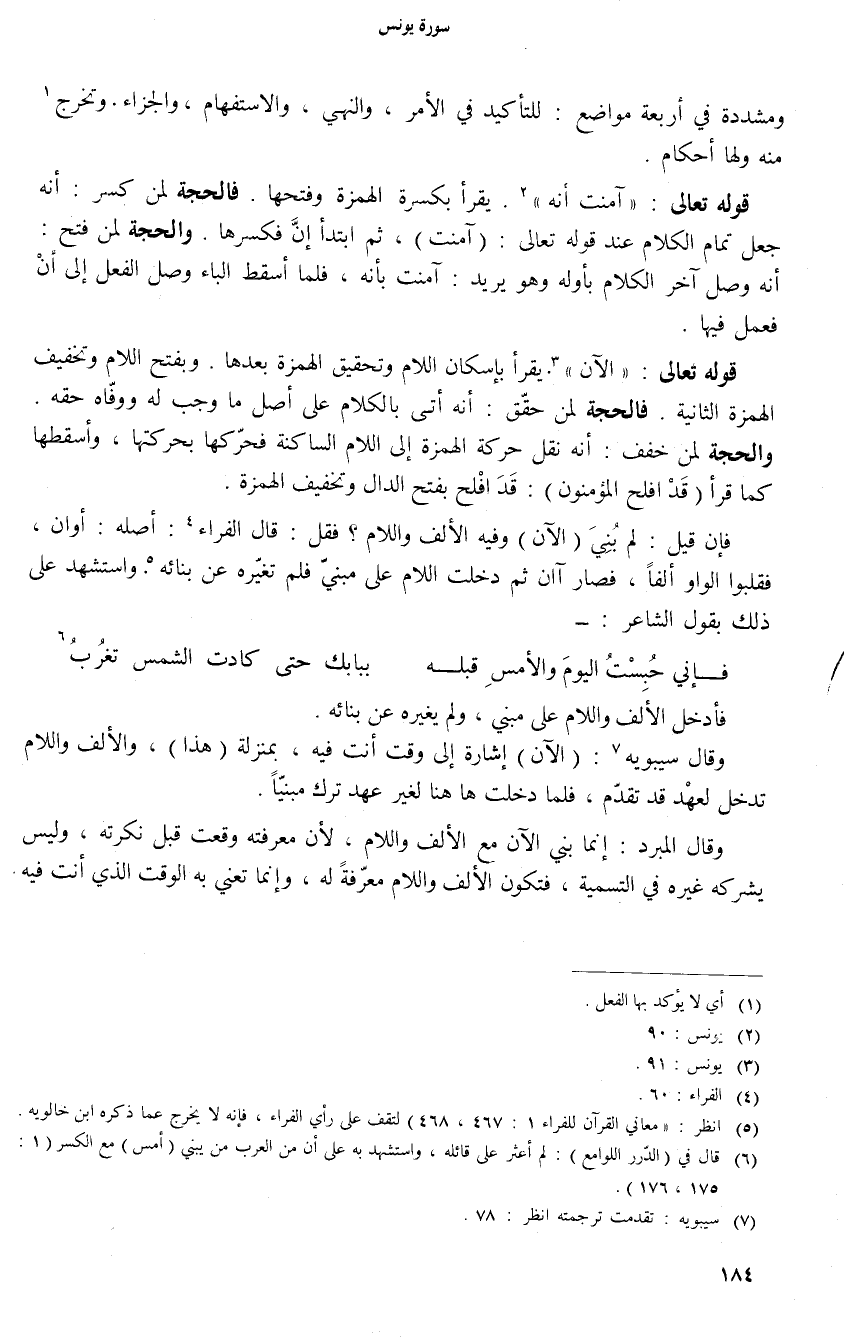 سورة يونس
ومشددة في أربعة مواضع : للتأكيد في الأمر ، والنهي ، والاستفهام ، والجزاء . وتخرج ١
منه ولها أحكام .
قوله تعالى : « آمنت أنه » ٢ . يقرأ بكسرة الهمزة وفتحها . فالحجة لمن كسر : أنه
جعل تمام الكلام عند قوله تعالى : ( آمنت ) ، ثم ابتدأ إنَّ فكسرها . والحجة لمن فتح :
أنه وصل آخر الكلام بأوله وهو يريد : آمنت بأنه ، فلما أسقط الباء وصل الفعل إلى أنْ
فعمل فيها .
قوله تعالى : « الآن » ٣ . يقرأ بإسكان اللام وتحقيق الهمزة بعدها . وبفتح اللام وتخفيف
الهمزة الثانية . فالحجة لمن حقّق : أنه أتى بالكلام على أصل ما وجب له ووفّاه حقه .
والحجة لمن خفف : أنه نقل حركة الهمزة إلى اللام الساكنة فحرّكها بحركتها ، وأسقطها
كما قرأ ( قَدْ افلح المؤمنون ) : قَدَ افْلح بفتح الدال وتخفيف الهمزة .
فإن قيل : لم بُنِيَ ( الآن ) وفيه الألف واللام ؟ فقل : قال الفراء ٤ : أصله : أوان ،
فقلبوا الواو ألفاً ، فصار آان ثم دخلت اللام على مبنيّ فلم تغيّره عن بنائه ٥ . واستشهد على
ذلك بقول الشاعر : –
فـــإني حُبِسْتُ اليومَ والأمسِ قبلـــه ببابك حتى كادت الشمس تغرُبُ ٦
فأدخل الألف واللام على مبني ، ولم يغيره عن بنائه .
وقال سيبويه ٧ : ( الآن ) إشارة إلى وقت أنت فيه ، بمنزلة ( هذا ) ، والألف واللام
تدخل لعهْد قد تقدّم ، فلما دخلت ها هنا لغير عهد ترك مبنيّاً .
وقال المبرد : إنما بني الآن مع الألف واللام ، لأن معرفته وقعت قبل نكرته ، وليس
يشركه غيره في التسمية ، فتكون الألف واللام معرّفةً له ، وإنما تعني به الوقت الذي أنت فيه .
(١) أي لا يؤكد بها الفعل .
(٢) يونس : ٩٠
(٣) يونس : ٩١ .
(٤) الفراء : ٦٠ .
(٥) انظر : « معاني القرآن للفراء ١ : ٤٦٧ ، ٤٦٨ ) لتقف على رأي الفراء ، فإنه لا يخرج عما ذكره ابن خالويه .
(٦) قال في ( الدّرر اللوامع ) : لم أعثر على قائله ، واستشهد به على أن من العرب من يبني ( أمس ) مع الكسر ( ١ :
١٧٥ ، ١٧٦ ) .
(٧) سيبويه : تقدمت ترجمته انظر : ٧٨ .
١٨٤